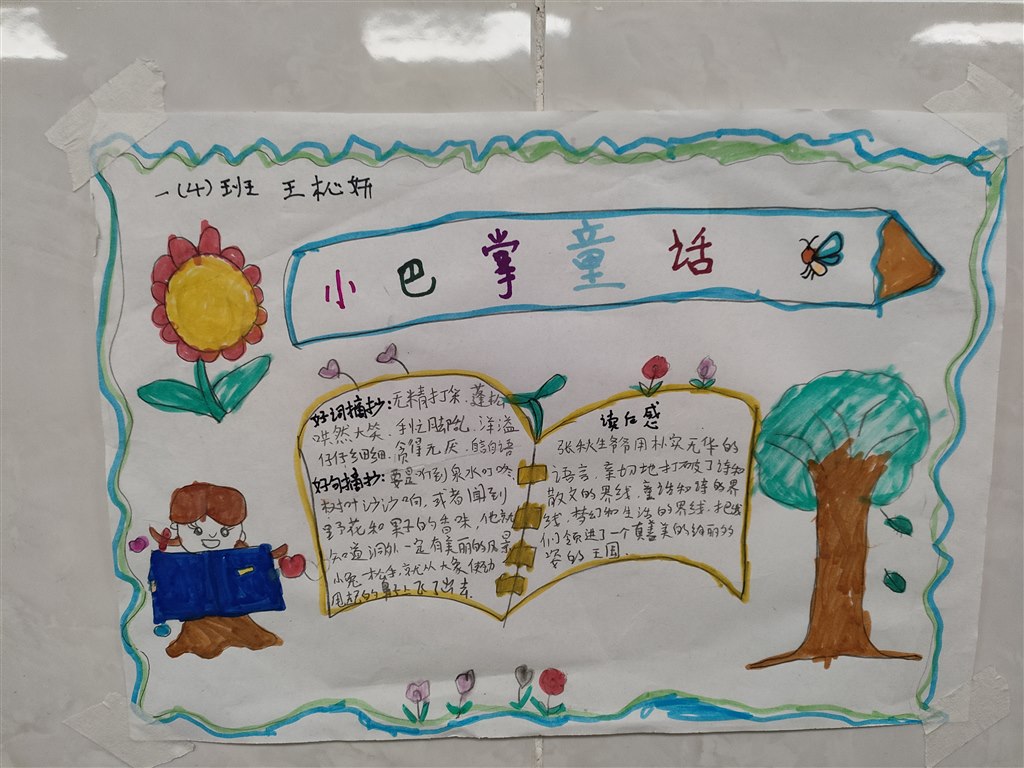 一(4)班 王松妍
小巴掌童话
好词摘抄:无精打采、蓬松
哄然大笑、手忙脚乱、洋溢
仔仔细细、贪得无厌、自言自语
好句摘抄:要是听到泉水叮咚、
树叶沙沙响,或者闻到
野花和果子的香味,他就
知道洞外一定有美丽的风景
小兔一松手,就从大象
的鼻子上飞了出去.
读后感
张秋生爷爷用朴实无华的
语言,亲切地打破了诗和
散文的界线,童话和诗的界
线,梦幻和生活的界线,把我
们领进了一个真善美的绚丽的
的王国.